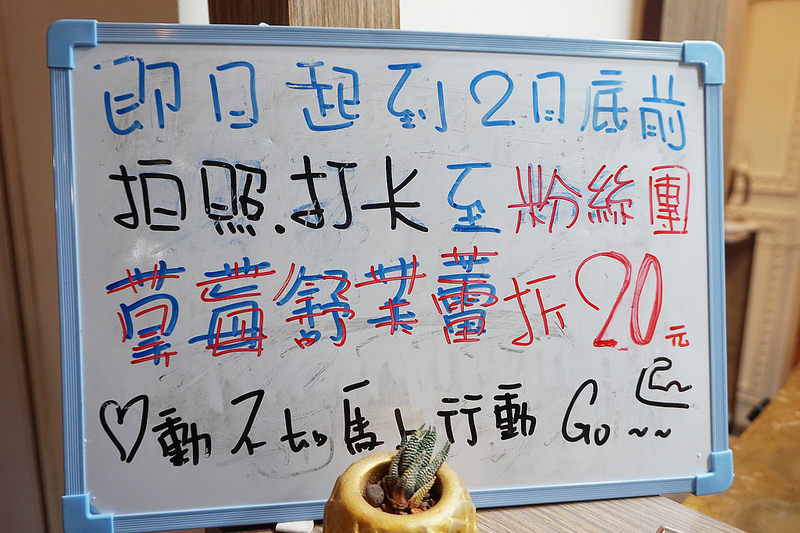 即日起到2月底前
拍照.打卡至粉絲團
草莓舒芙蕾折20元
♡動不如馬上行動 Go~~